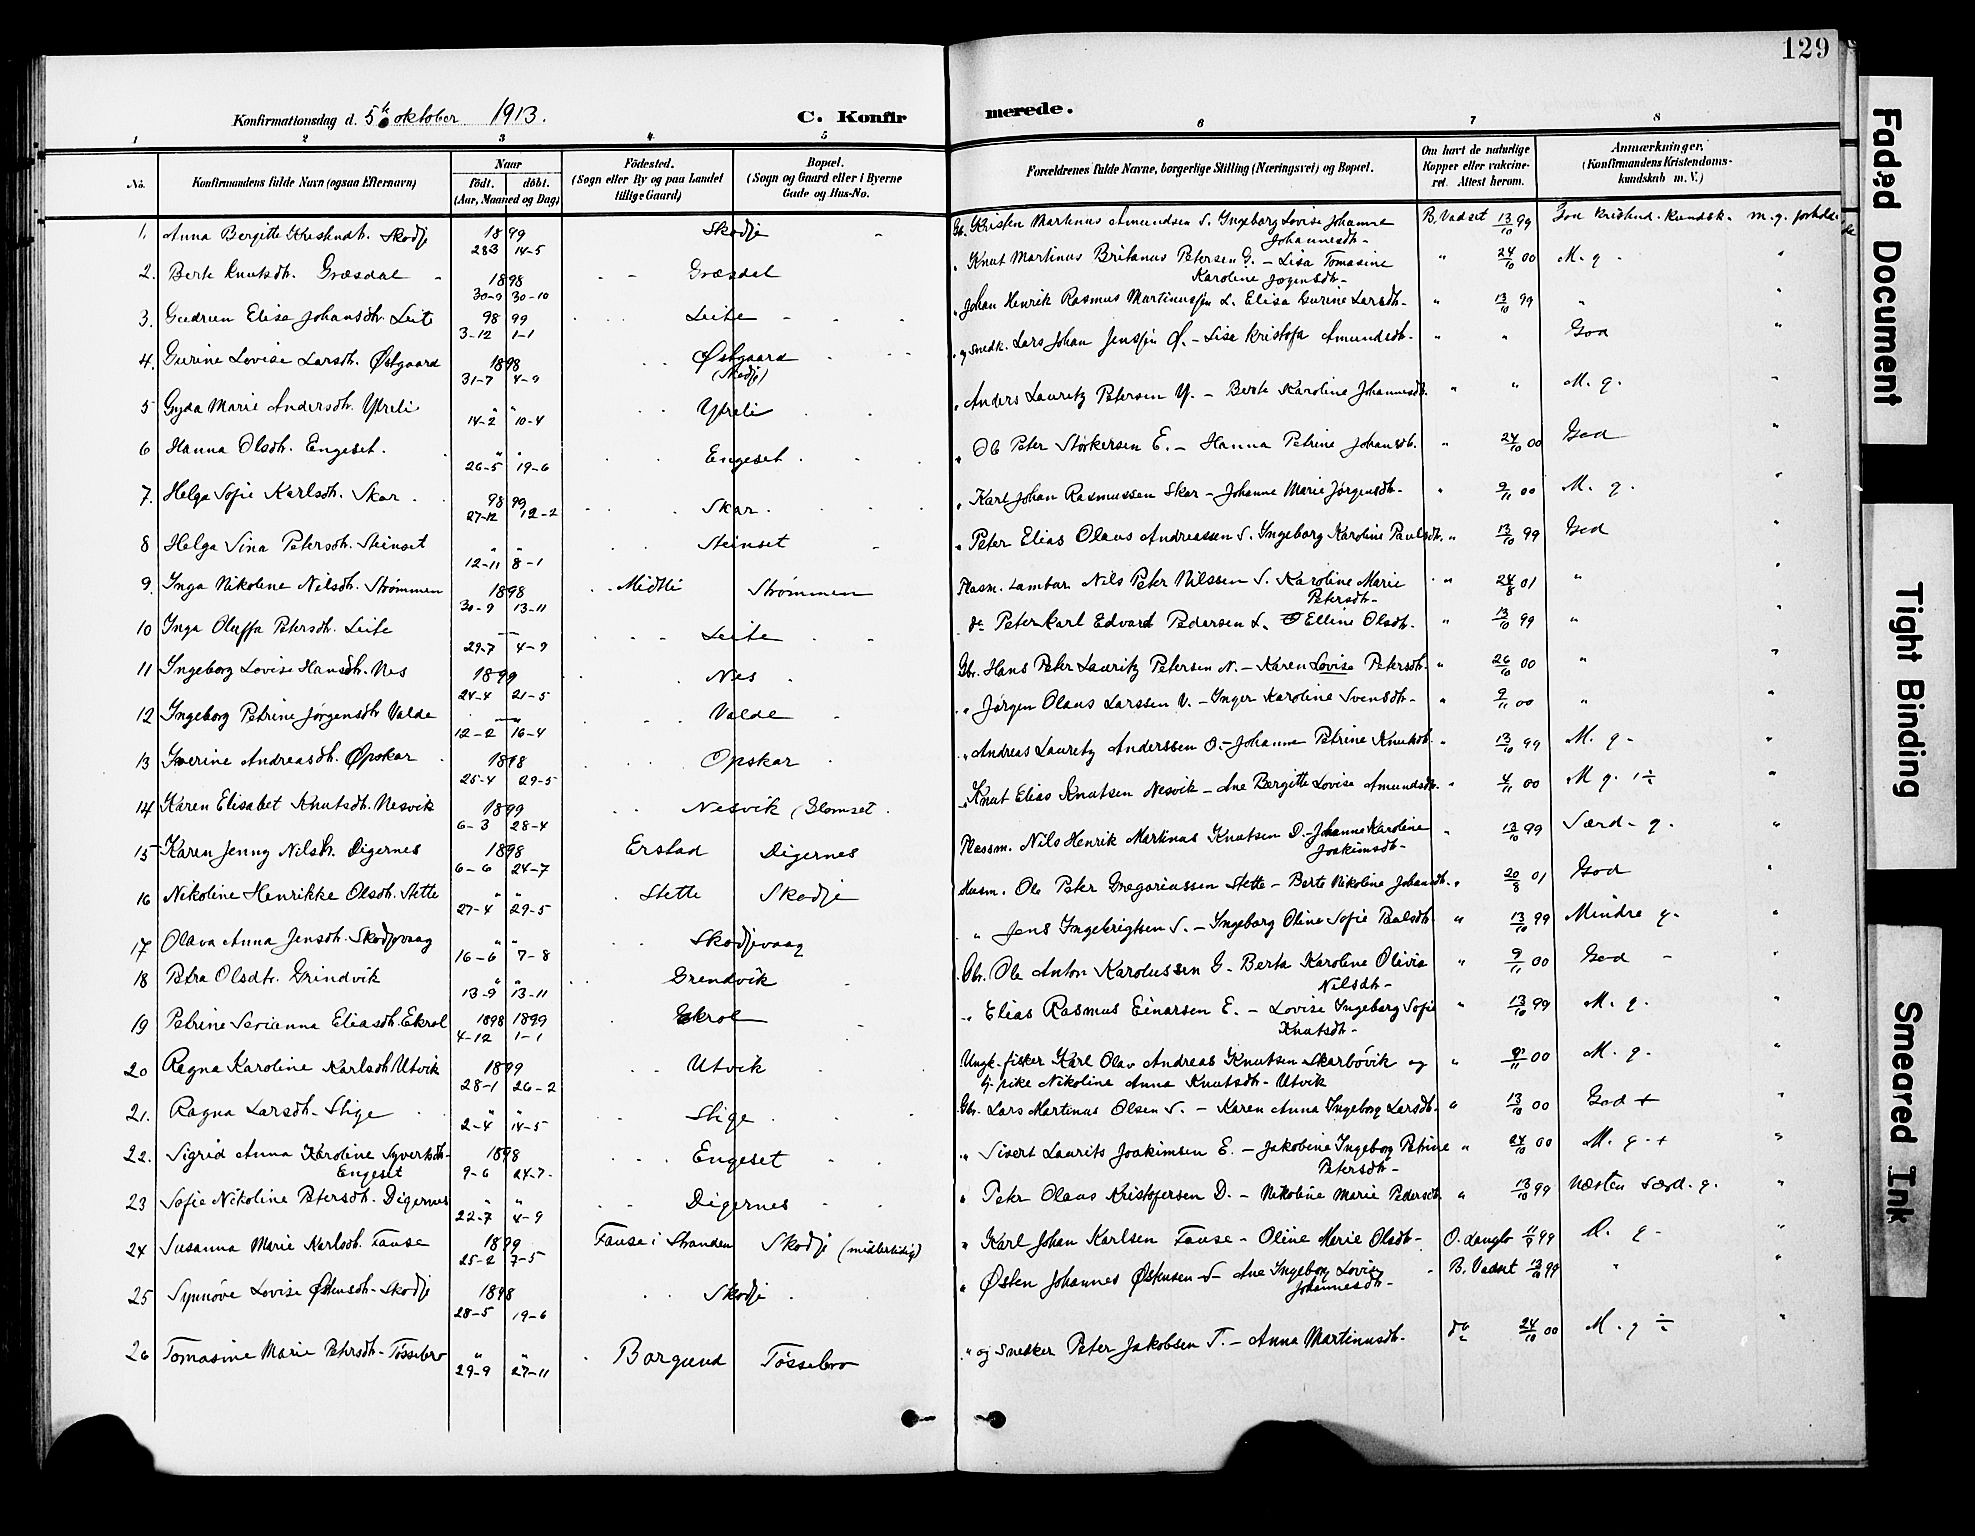 129
Konfirmationsdag d. 5 oktober 1913. C. Konfirmerede.
1 2 3 4 5 6 7 8
No. Konfirmandens fulde Navn (ogsaa Efternavn) Naar født. døbt. (Aar, Maaned og Dag) Födested. (Sogn eller By og paa Landet tillige Gaard) Bopæl. (Sogn og Gaard eller i Byerne Gade og Hus-No. Forældrenes fulde Navne, borgerlige Stilling (Næringsvei) og Bopæl. Om havt de naturlige Kopper eller vaccineret. Attest herom. Anmærkninger, (Konfirmandens Kristendomskundskab m. V.)
1. Anna Bergitte Skodje 1899 28-3 14-5 Skodje Gb. Kristen Martinus Amundsen S. Ingeborg Lovise Johanne Johannesdtr. B. Vadset 13/10 99 God kristend. kundsk. m. g. forhold
2. Berte Knutsdtr. Græsdal 1898 30-9 30-10 Græsdal " Knut Martinus Britanus Petersen G. - Lisa Tomasine Karoline Jogensdtr. " 24/10 00 M. g. "
3. Gudrun Elise Johansdtr. Leite 98 99 3-12 1-1 Leite " Johan Henrik Rasmus Martinussen L. Elisa Gurine Larsdtr. " 13/10 99 " "
4. Gurine Lovise Larsdtr. Østgaard 1898 31-7 4-9 Østgaard (Skodje) " og Snedk. Lars Johan Jenssen Ø. - Lise Kristofa Amundsdtr. " " God "
5 Gyda Marie Andersdtr. Ytreli " " 14-2 10-4 Ytreli " Anders Lauritz Petersen Y. - Berte Karoline Johannesdtr. " " M. g. "
6 Hanna Olsdtr. Engeset. " " 26-5 19-6 Engeset " Ole Peter Storkersen E. - Hanna Petrine Johansdtr. " 24/10 00 God "
7. Helga Sofie Karlsdtr. Skar 98 99 27-12 12-2 Skar. " Karl Johan Rasmussen Skar - Johanne Marie Jørgensdtr. " 9/11 00 M. g. "
8 Helga Sina Petersdtr. Steinset " " 12-11 8-1 Steinset " Peter Elias Olaus Andreassen S. Ingeborg Karoline Paulsdtr. " 13/10 99 God "
9. Inga Nikoline Nilsdtr. Strømmen 1898 30-9 13-11 Midtli Strømmen Plasm. Nils Peter Nilssen S. Karoline Marie Petersdtr. " 24/8 01 " "
10 Inga Oluffa Petersdtr. Leite 29-7 4-9 Leite do Peter Karl Edvard Pedersen L. Elline Olsdtr. " 13/10 99 " "
11 Ingeborg Lovise Hansdtr. Nes 1899 24-4 21-5 Nes Gbr. Hans Peter Lauritz Petersen N. - Karen Lovise Petersdtr. " 26/10 00 " "
12 Ingeborg Petrine Jørgensdtr Valde 12-2 16-4 Valde " Jørgen Olaus Larssen V. - Inger Karoline Svensdtr. " 9/11 00 " "
13 Iverine Andreasdtr. Øpskar 1898 25-4 29-5 Opskar " Andreas Lauretz Anderssen O. - Johanne Petrine Knutsdtr. " 13/10 99 M. g. "
14 Karen Elisabet Knutsdtr. Nesvik 1899 6-3 28-4 Nesvik (Glomset " Knut Elias Knutsen Nesvik - Ane Bergitte Lovise Amundsdtr. " 4/11 00 M g. "
15 Karen Jenny Nilsdtr. Digernes 1898 6-6 24-7 Erstad Digernes Plassm. Nils Henrik Martinus Knutsen D. - Johanne Karoline Joakimsdtr. " 13/10 99 Særd. g. "
16 Nikoline Henrikke Olsdtr. Stette " " 27-4 29-5 Stette Skodje Husm. Ole Peter Gregoriussen Stette - Berte Nikoline Johansdtr. " 20/8 01 God "
17 Olava Anna Jensdtr. Skodjevaag " " 16-6 7-8 Skodjevaag " Jens Ingebrigtsen S. - Ingeborg Oline Sofie Paulsdtr. " 13/10 99 Mindre g. "
18 Petra Olsdtr. Grindvik " " 13-9 13-11 Grendvik Gbr. Ole Anton Karolussen G. Berta Karoline Olivia Nilsdtr. " 9/11 00 God "
19 Petrine Severianna Eliasdtr. Ekrol 1898 1899 4-12 1-1 Ekrol " Elias Rasmus Einarsen E. - Lovise Ingeborg Sofie Knutsdtr. " 13/10 99 M. g. "
20 Ragna Karoline Karlsdtr Utvik 1899 28-1 26-2 Utvik Ungk. fisker Karl Olav Andreas Knutsen Skarbøvik og
pike Nikoline Anna Knutsdtr. Utvik " 9/11 00 M. g. "
21. Ragna Larsdtr. Slige " " 2-4 14-5 Slige Gbr. Lars Martinus Olsen S. - Karen Anna Ingeborg Larsdtr. " 13/10 00 God + "
22. Sigrid Anna Karoline Syvertsdtr. Engeset 1898 9-6 24-7 Engeset " Sivert Laurits Joakimsen E. - Jakobine Ingeborg Petrine Petersdtr. " 24/10 00 M. g. + "
23 Sofie Nikoline Petersdtr. Digernes " " 22-7 4-9 Digernes " Peter Olaus Kristofersen D. - Nikoline Marie Pedersdtr. " 13/10 99 Næsten særd. g. "
24 Susanna Marie Karlsdtr. Fause 1899 25-2 7-5 Fause i Stranden Skodje (midlertidig) " Karl Johan Karlsen Fause - Oline Marie Olsdtr. O. Langlo 11/9 99 g. "
25 Synnøve Lovise Østensdtr. Skodje 1898 28-5 19-6 Skodje " Østen Johannes Østensen S. Ane Ingeborg Lovise Johannesdtr. B. Vadset 13/10 99 " "
26 Tomasine Marie Petersdtr. Tøssebro " " 29-9 27-11 Borgund Tøssebro " og Snedker Peter Jakobsen T. - Anna Martinusdtr. do 24/10 00 M. g "
Faded Document
Tight Binding
Smeared Ink